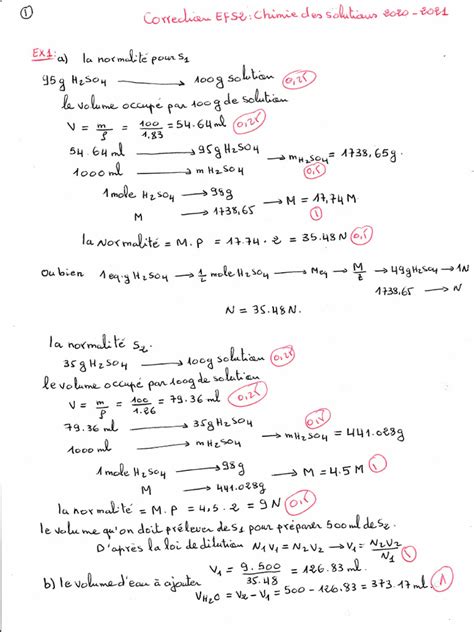 ① Correction EFS2: Chimie des solutions 2020-2021
EX1: a) la normalité pour S1
95g H2SO4 → 100g solution 0,25
le volume occupé par 100g de solution
V = m/ρ = 100/1.83 = 54.64 ml 0,25
54.64 ml → 95g H2SO4
1000 ml → mH2SO4 → mH2SO4 = 1738,65g. 0,5
1 mole H2SO4 → 98g
M → 1738,65 → M = 17,74 M 1
la Normalité = M.P = 17.74 . 2 = 35.48 N 0,5
ou bien 1eq.g H2SO4 → 1/2 mole H2SO4 → Meq → M/2 → 49g H2SO4 → 1N
1738,65 → N
N = 35.48 N.
la normalité S2.
35g H2SO4 → 100g solution 0,25
le volume occupé par 100g de solution
V = m/ρ = 100/1.26 = 79.36 ml 0,25
79.36 ml → 35g H2SO4
1000 ml → mH2SO4 → mH2SO4 = 441.028g 0,5
1 mole H2SO4 → 98g
M → 441.028g → M = 4.5 M 1
la normalité = M.P = 4,5 . 2 = 9N 0,5
le volume qu'on doit prélever de S1 pour préparer 500ml de S2.
D'après la loi de dilution N1V1 = N2V2 → V1 = N2V2/N1 1
V1 = 9.500/35.48 = 126.83 ml.
b) le volume d'eau à ajouter
VH2O = V2 - V1 = 500 - 126.83 = 373.17 ml. 1